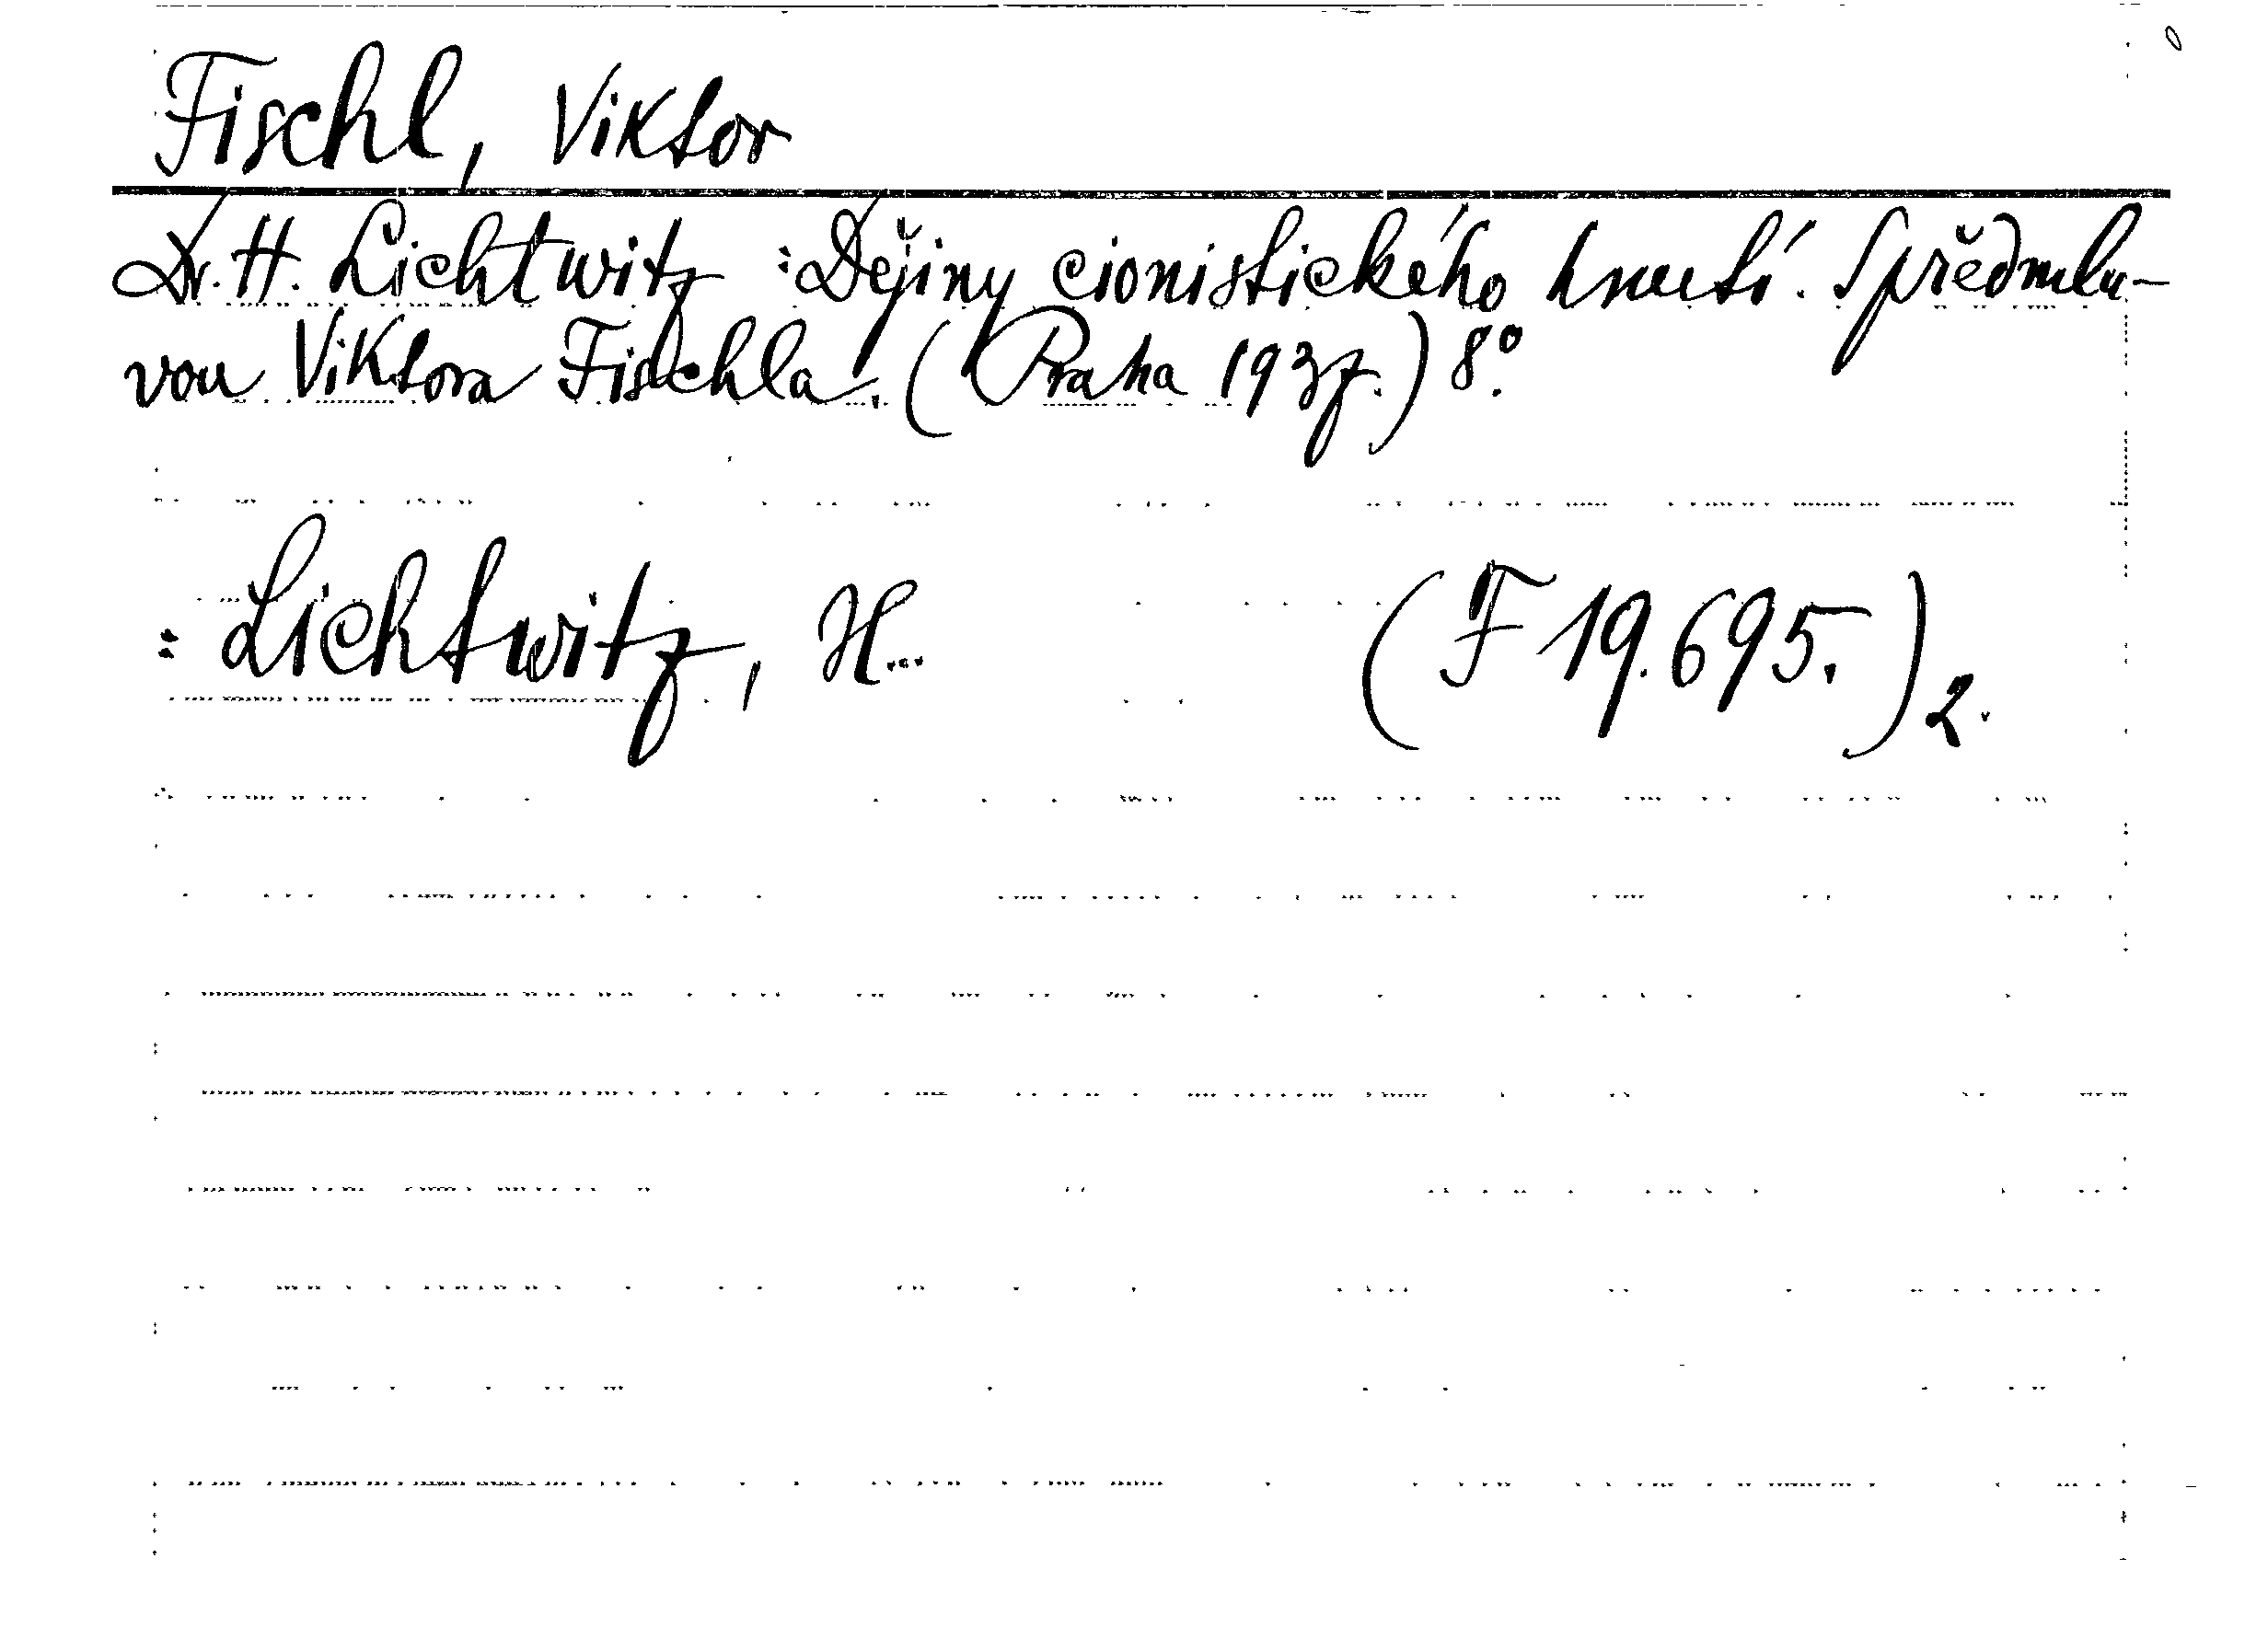 Fischl, Viktor
Dr. H. Lichtwitz : Dějiny cionistického hnutí. S předmlu-
vou Viktora Fischla. (Praha 1937.) 8°.
: Lichtwitz, H...
(F 19.695.)2.